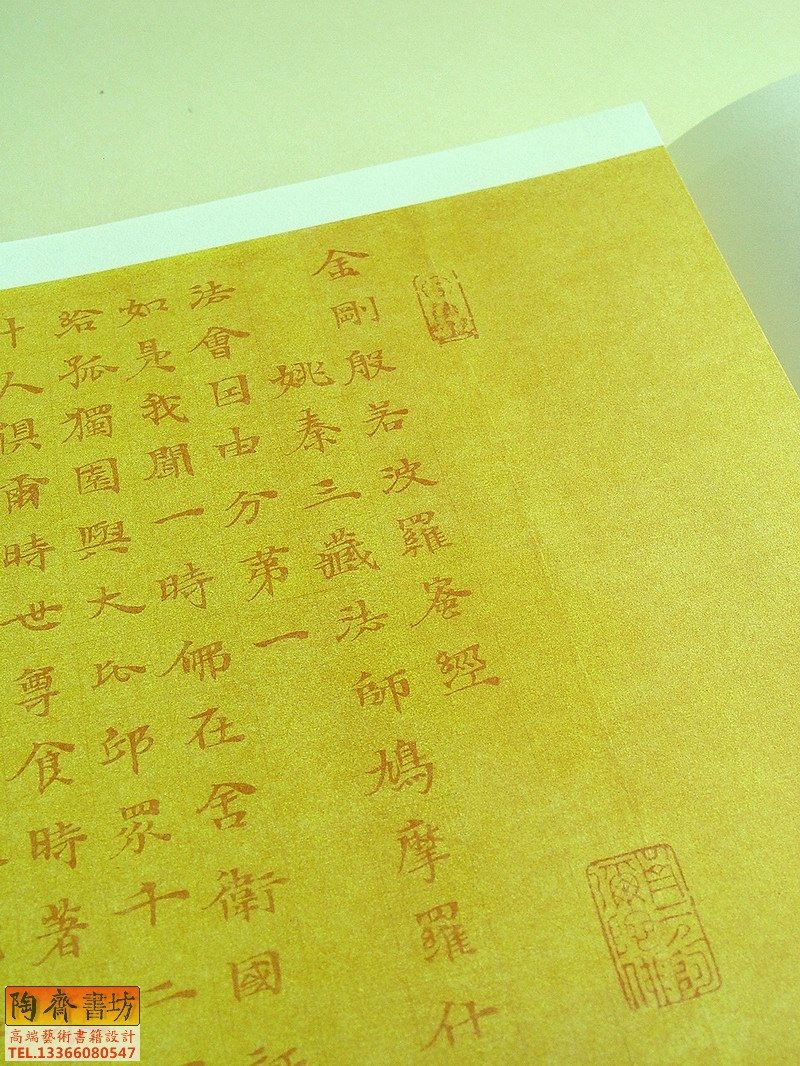 金剛般若波羅蜜經
姚秦三藏法師鳩摩羅什
法會因由分第一
如是我聞一時佛在舍衛國
給孤獨園與大比邱眾千二
十人俱爾時世尊食時著
陶齋書坊
高端藝術書籍設計
TEL.13366080547